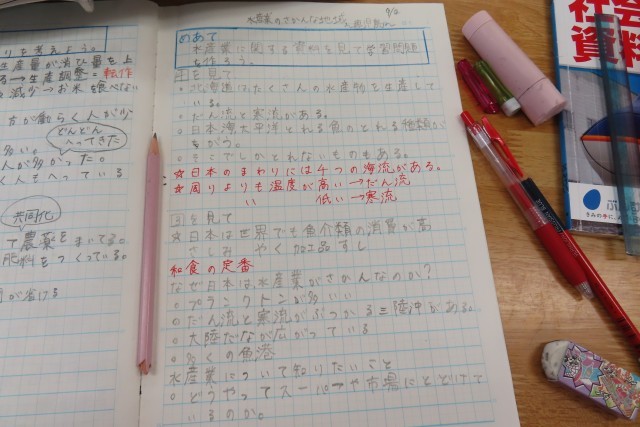 りを考えよう。
生産量が消ひ量を上
る→生産調整=転作
減少→お米を食べない
方が働らく人が少
多い。
どんどん
へってきた
人が多かった。
く人もへっている
共同化
て農薬をまいてる。
肥料をつくっている。
が省ける
水産業のさかんな地いき
9/2
めあて
水産業に関する資料を見て学習問題
を作ろう。
を見て
北海道はたくさんの水産物を生産して
いる。
○だん流と寒流がある。
○日本海太平洋とれる魚のとれる種類が
ちがう。
○そこでしかとれないものもある。
☆日本のまわりには4つの海流がある。
☆周りよりも温度が高い→だん流
い 低い→寒流
を見て
☆日本は世界でも魚介類の消費が高
さしみ やく 加工品 すし
和食の定番
なぜ日本は水産業がさかんなのか?
○プランクトンが多い
○だん流と寒流がぶつかる三陸沖がある。
○大陸だなが広がっている
○多くの魚港
水産業について知りたいこと
○どうやってスーパーや市場にとどけて
いるのか。
社会
資料